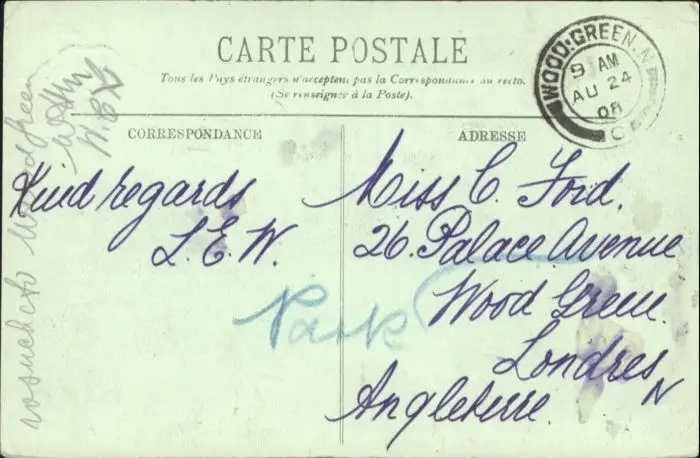 CARTE POSTALE
Tous les Pays étrangers n'acceptent pas la Correspondance au recto.
(Se renseigner à la Poste).
WOOD-GREEN.N
9 AM
AU 24
08
C
CORRESPONDANCE
ADRESSE
Kind regards
L.E.W.
Miss C. Ford.
26. Palace Avenue
Wood Green.
Londres
N
Angleterre.
Park
Wood Green